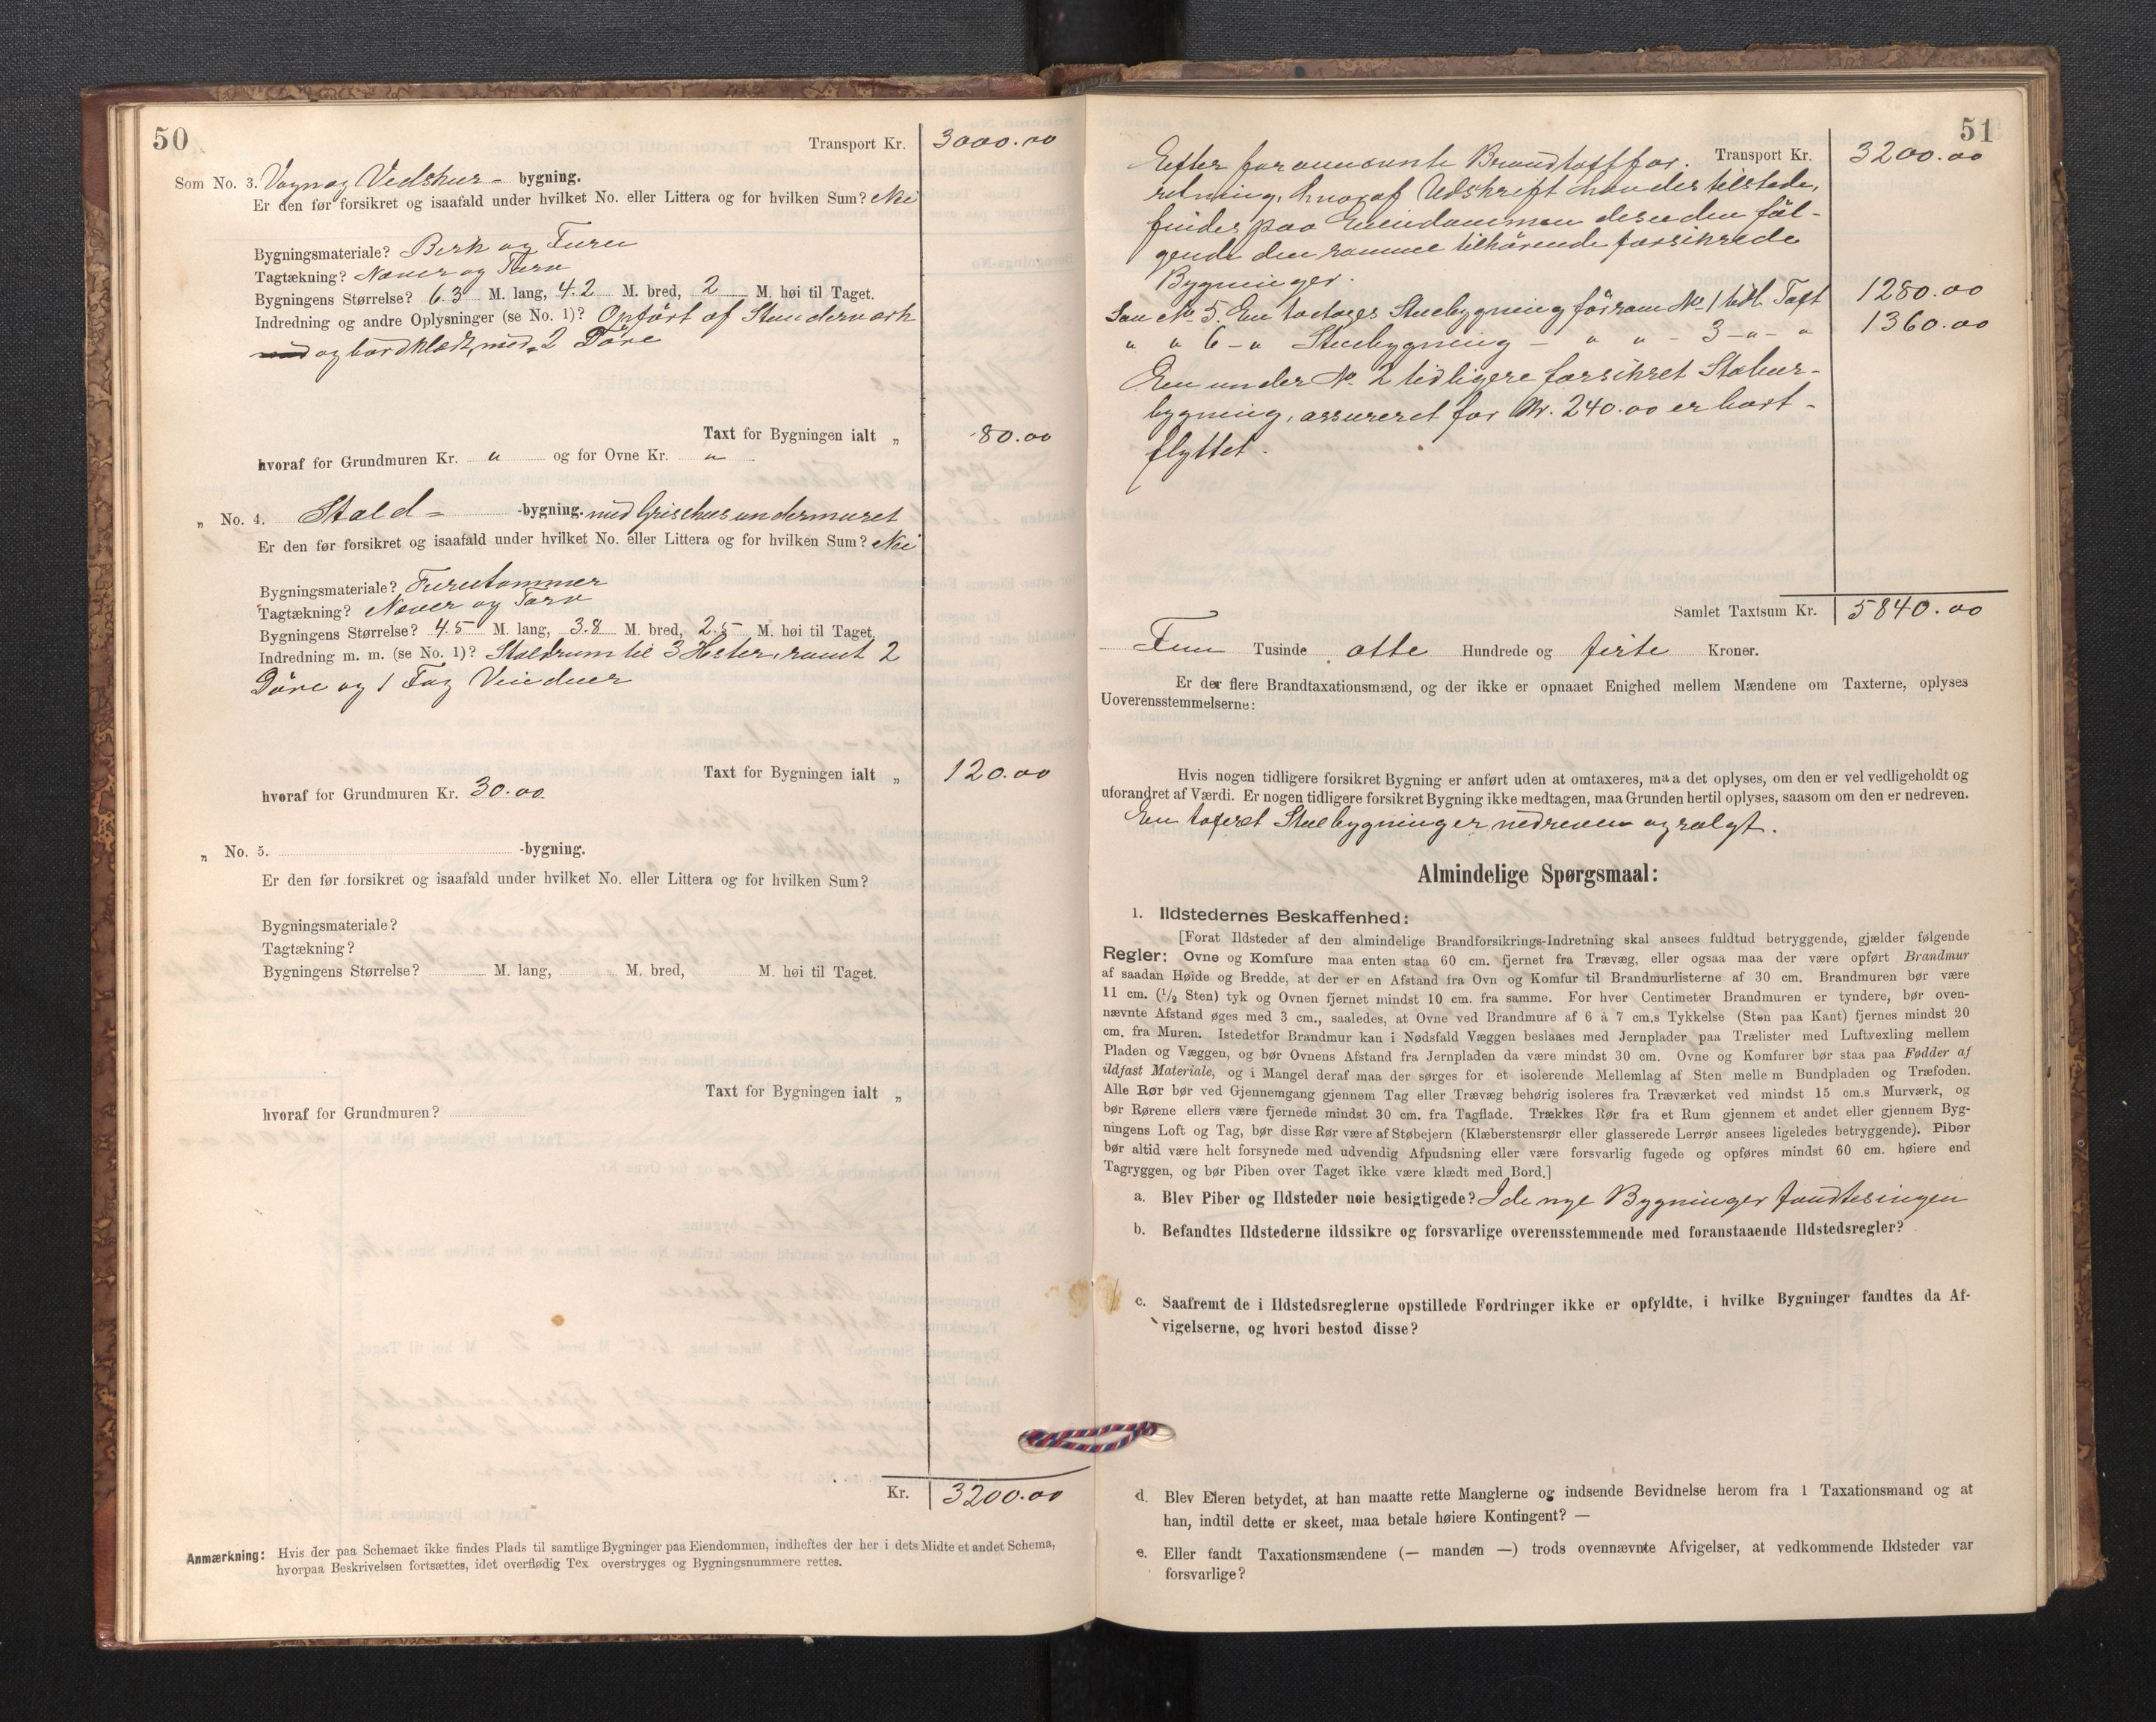 50
Transport Kr. 3000.00
Som No. 3. Vogn og Vedskur- bygning.
Er den før forsikret og isaafald under hvilket No. eller Littera og for hvilken Sum? Nei
Bygningsmateriale? Berk og Furu
Tagtækning? Never og Torv
Bygningens Størrelse? 6.3 M. lang, 4.2 M. bred, 2 M. høi til Taget.
Indredning og andre Oplysninger (se No. 1)? Opført af Stenderverk
og bordklædt, med 2 Døre
Taxt for Bygningen ialt „ 80.00
hvoraf for Grundmuren Kr. „ og for Ovne Kr. „
„ No. 4. Stald- -bygning. med Grisehus undermuret
Er den før forsikret og isaafald under hvilket No. eller Littera og for hvilken Sum? Nei
Bygningsmateriale? Furutømmer
Tagtækning? Never og Torv
Bygningens Størrelse? 4.5 M. lang, 3.8 M. bred, 2.5 M. høi til Taget.
Indredning m. m. (se No. 1)? Staldrum til 3 Hester, samt 2
Døre og 1 Fag Vinduer
Taxt for Bygningen ialt „ 120.00
hvoraf for Grundmuren Kr. 30.00
„ No. 5. -bygning.
Er den før forsikret og isaafald under hvilket No. eller Littera og for hvilken Sum?
Bygningsmateriale?
Tagtækning?
Bygningens Størrelse? M. lang, M. bred, M. høi til Taget.
Taxt for Bygningen ialt „
hvoraf for Grundmuren?
Kr. 3200.00
Anmærkning: Hvis der paa Schemaet ikke findes Plads til samtlige Bygninger paa Eiendommen, indheftes der her i dets Midte et andet Schema,
hvorpaa Beskrivelsen fortsættes, idet overflødig Tex overstryges og Bygningsnummere rettes.
51
Transport Kr. 3200.00
Efter foranævnte Brandtaftfor-
retning, hvoraf Udskrift havdes tilstede,
findes paa Eiendommen desuden føl-
gende den samme tilhørende forsikrede
Bygninger.
Som No. 5. En toetages Stuebygning før som No. 1 tidl. Taxt 1280.00
„ „ 6 - „ Stuebygning - „ „ - 3 - „ - „ 1360.00
En under No. 2 tidligere forsikret Stabur-
bygning, assureret for Kr. 240.00 er bort-
flyttet.
Samlet Taxtsum Kr. 5840.00
Fem Tusinde otte Hundrede og firte Kroner.
Er der flere Brandtaxationsmænd, og der ikke er opnaaet Enighed mellem Mændene om Taxterne, oplyses
Uoverensstemmelserne:
Hvis nogen tidligere forsikret Bygning er anført uden at omtaxeres, maa det oplyses, om den er vel vedligeholdt og
uforandret af Værdi. Er nogen tidligere forsikret Bygning ikke medtagen, maa Grunden hertil oplyses, saasom om den er nedreven.
En Stuebygning er nedreven og solgt.
Almindelige Spørgsmaal:
1. Ildstedernes Beskaffenhed:
[Forat Ildsteder af den almindelige Brandforsikrings-Indretning skal ansees fuldtud betryggende, gjælder følgende
Regler: Ovne og Komfure maa enten staa 60 cm. fjernet fra Trævæg, eller ogsaa maa der være opført Brandmur
af saadan Høide og Bredde, at der er en Afstand fra Ovn og Komfur til Brandmurlisterne af 30 cm. Brandmuren bør være
11 cm. (1/2 Sten) tyk og Ovnen fjernet mindst 10 cm. fra samme. For hver Centimeter Brandmuren er tyndere, bør oven-
nævnte Afstand øges med 3 cm., saaledes, at Ovne ved Brandmure af 6 à 7 cm.s Tykkelse (Sten paa Kant) fjernes mindst 20
cm. fra Muren. Istedetfor Brandmur kan i Nødsfald Væggen beslaaes med Jernplader paa Trælister med Luftvexling mellem
Pladen og Væggen, og bør Ovnens Afstand fra Jernpladen da være mindst 30 cm. Ovne og Komfurer bør staa paa Fødder af
ildfast Materiale, og i Mangel deraf maa der sørges for et isolerende Mellemlag af Sten melle m Bundpladen og Træfoden.
Alle Rør bør ved Gjennemgang gjennem Tag eller Trævæg behørig isoleres fra Træverket ved mindst 15 cm.s Murværk, og
bør Rørene ellers være fjernede mindst 30 cm. fra Tagflade. Trækkes Rør fra et Rum gjennem et andet eller gjennem Byg-
ningens Loft og Tag, bør disse Rør være af Støbejern (Klæberstensrør eller glasserede Lerrør ansees ligeledes betryggende). Piber
bør altid være helt forsynede med udvendig Afpudsning eller være forsvarlig fugede og opføres mindst 60 cm. høiere end
Tagryggen, og bør Piben over Taget ikke være klædt med Bord.]
a. Blev Piber og Ildsteder nøie besigtigede? I de nye Bygninger fandtes ingen
b. Befandtes Ildstederne ildssikre og forsvarlige overensstemmende med foranstaaende Ildstedsregler?
c. Saafremt de i Ildstedsreglerne opstillede Fordringer ikke er opfyldte, i hvilke Bygninger fandtes da Af-
vigelserne, og hvori bestod disse?
d. Blev Eieren betydet, at han maatte rette Manglerne og indsende Bevidnelse herom fra 1 Taxationsmand og at
han, indtil dette er skeet, maa betale høiere Kontingent? —
e. Eller fandt Taxationsmændene (— manden —) trods ovennævnte Afvigelser, at vedkommende Ildsteder var
forsvarlige?